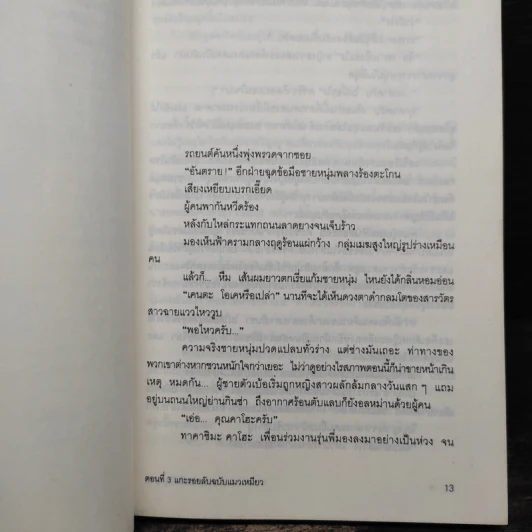 รถยนต์คันหนึ่งพุ่งพรวดจากซอย
"อันตราย!" อีกฝ่ายฉุดข้อมือชายหนุ่มพลางร้องตะโกน
เสียงเหยียบเบรกเอี๊ยด
ผู้คนพากันหวีดร้อง
หลังกับไหล่กระแทกถนนลาดยางจนเจ็บร้าว
มองเห็นฟ้าครามกลางฤดูร้อนแผ่กว้าง กลุ่มเมฆสูงใหญ่รูปร่างเหมือน
คน
แล้วก็... หืม เส้นผมยาวตกเรี่ยแก้มชายหนุ่ม ไหนยังได้กลิ่นหอมอ่อน
"เคนตะ โอเคหรือเปล่า" นานทีจะได้เห็นดวงตาดำกลมโตของสารวัตร
สาวฉายแววไหววูบ
"พอไหวครับ..."
ความจริงชายหนุ่มปวดแปลบทั่วร่าง แต่ช่างมันเถอะ ท่าทางของ
พวกเขาต่างหากชวนหนักใจกว่าเยอะ ไม่ว่าดูอย่างไรสภาพตอนนี้ก็น่าขายหน้าเกิน
เหตุ หมดกัน... ผู้ชายตัวเบ้อเริ่มถูกหญิงสาวผลักล้มกลางวันแสก ๆ แถม
อยู่บนถนนใหญ่ย่านกินซ่า ถึงอากาศร้อนตับแลบก็ยังอลหม่านด้วยผู้คน
"เอ่อ... คุณคาโฮะครับ"
ทาคาชิมะ คาโฮะ เพื่อนร่วมงานรุ่นพี่มองลงมาอย่างเป็นห่วง จน
ตอนที่ 3 แกะรอยลับฉบับแมวเหมียว
13